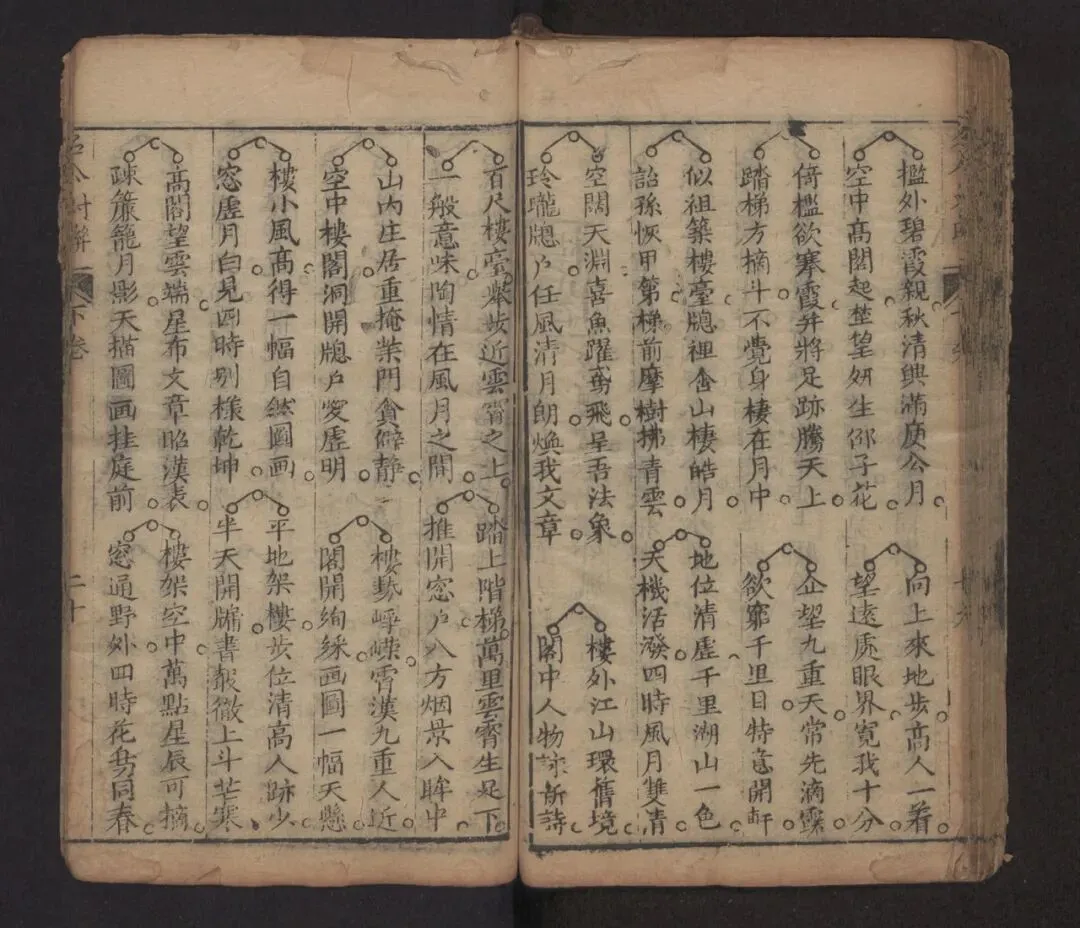 檻外碧霞親秋清興滿庾公月
空中高閣起楚望妍生邵子花
向上來地步高人一着
望遠處眼界寬我十分
倚檻欲搴霞并將足跡騰天上
踏梯方摘斗不覺身棲在月中
企望九重天常先滴露
欲窮千里目特意開軒
似祖築樓臺牕裡金山棲皓月
詒孫恢甲第梯前摩樹拂青雲
地位清虛千里湖山一色
天機活潑四時風月雙清
空闊天淵喜魚躍鳶飛呈吾法象
玲瓏牕戶任風清月朗煥我文章
樓外江山環情境
閣中人物詠新詩
百尺樓臺舉步近雲霄之上
一般意味陶情在風月之間
踏上階梯萬里雲霄生足下
推開窓戶八方烟景入眸中
山內庄居重掩柴門貪僻靜
空中樓閣洞開牕戶愛虛明
樓勢崢嶸霄漢九重人近
閣開絢綵画圖一幅天懸
樓小風高得一幅自然圖画
窓虛月白見四時別樣乾坤
平地架樓步位清高人跡少
半天開牖書聲徹上斗芒寒
高閣望雲端星布文章昭漢表
疎簾籠月影天描圖画挂庭前
樓架空中萬點星辰可摘
窓通野外四時花鳥同春
下卷
二十